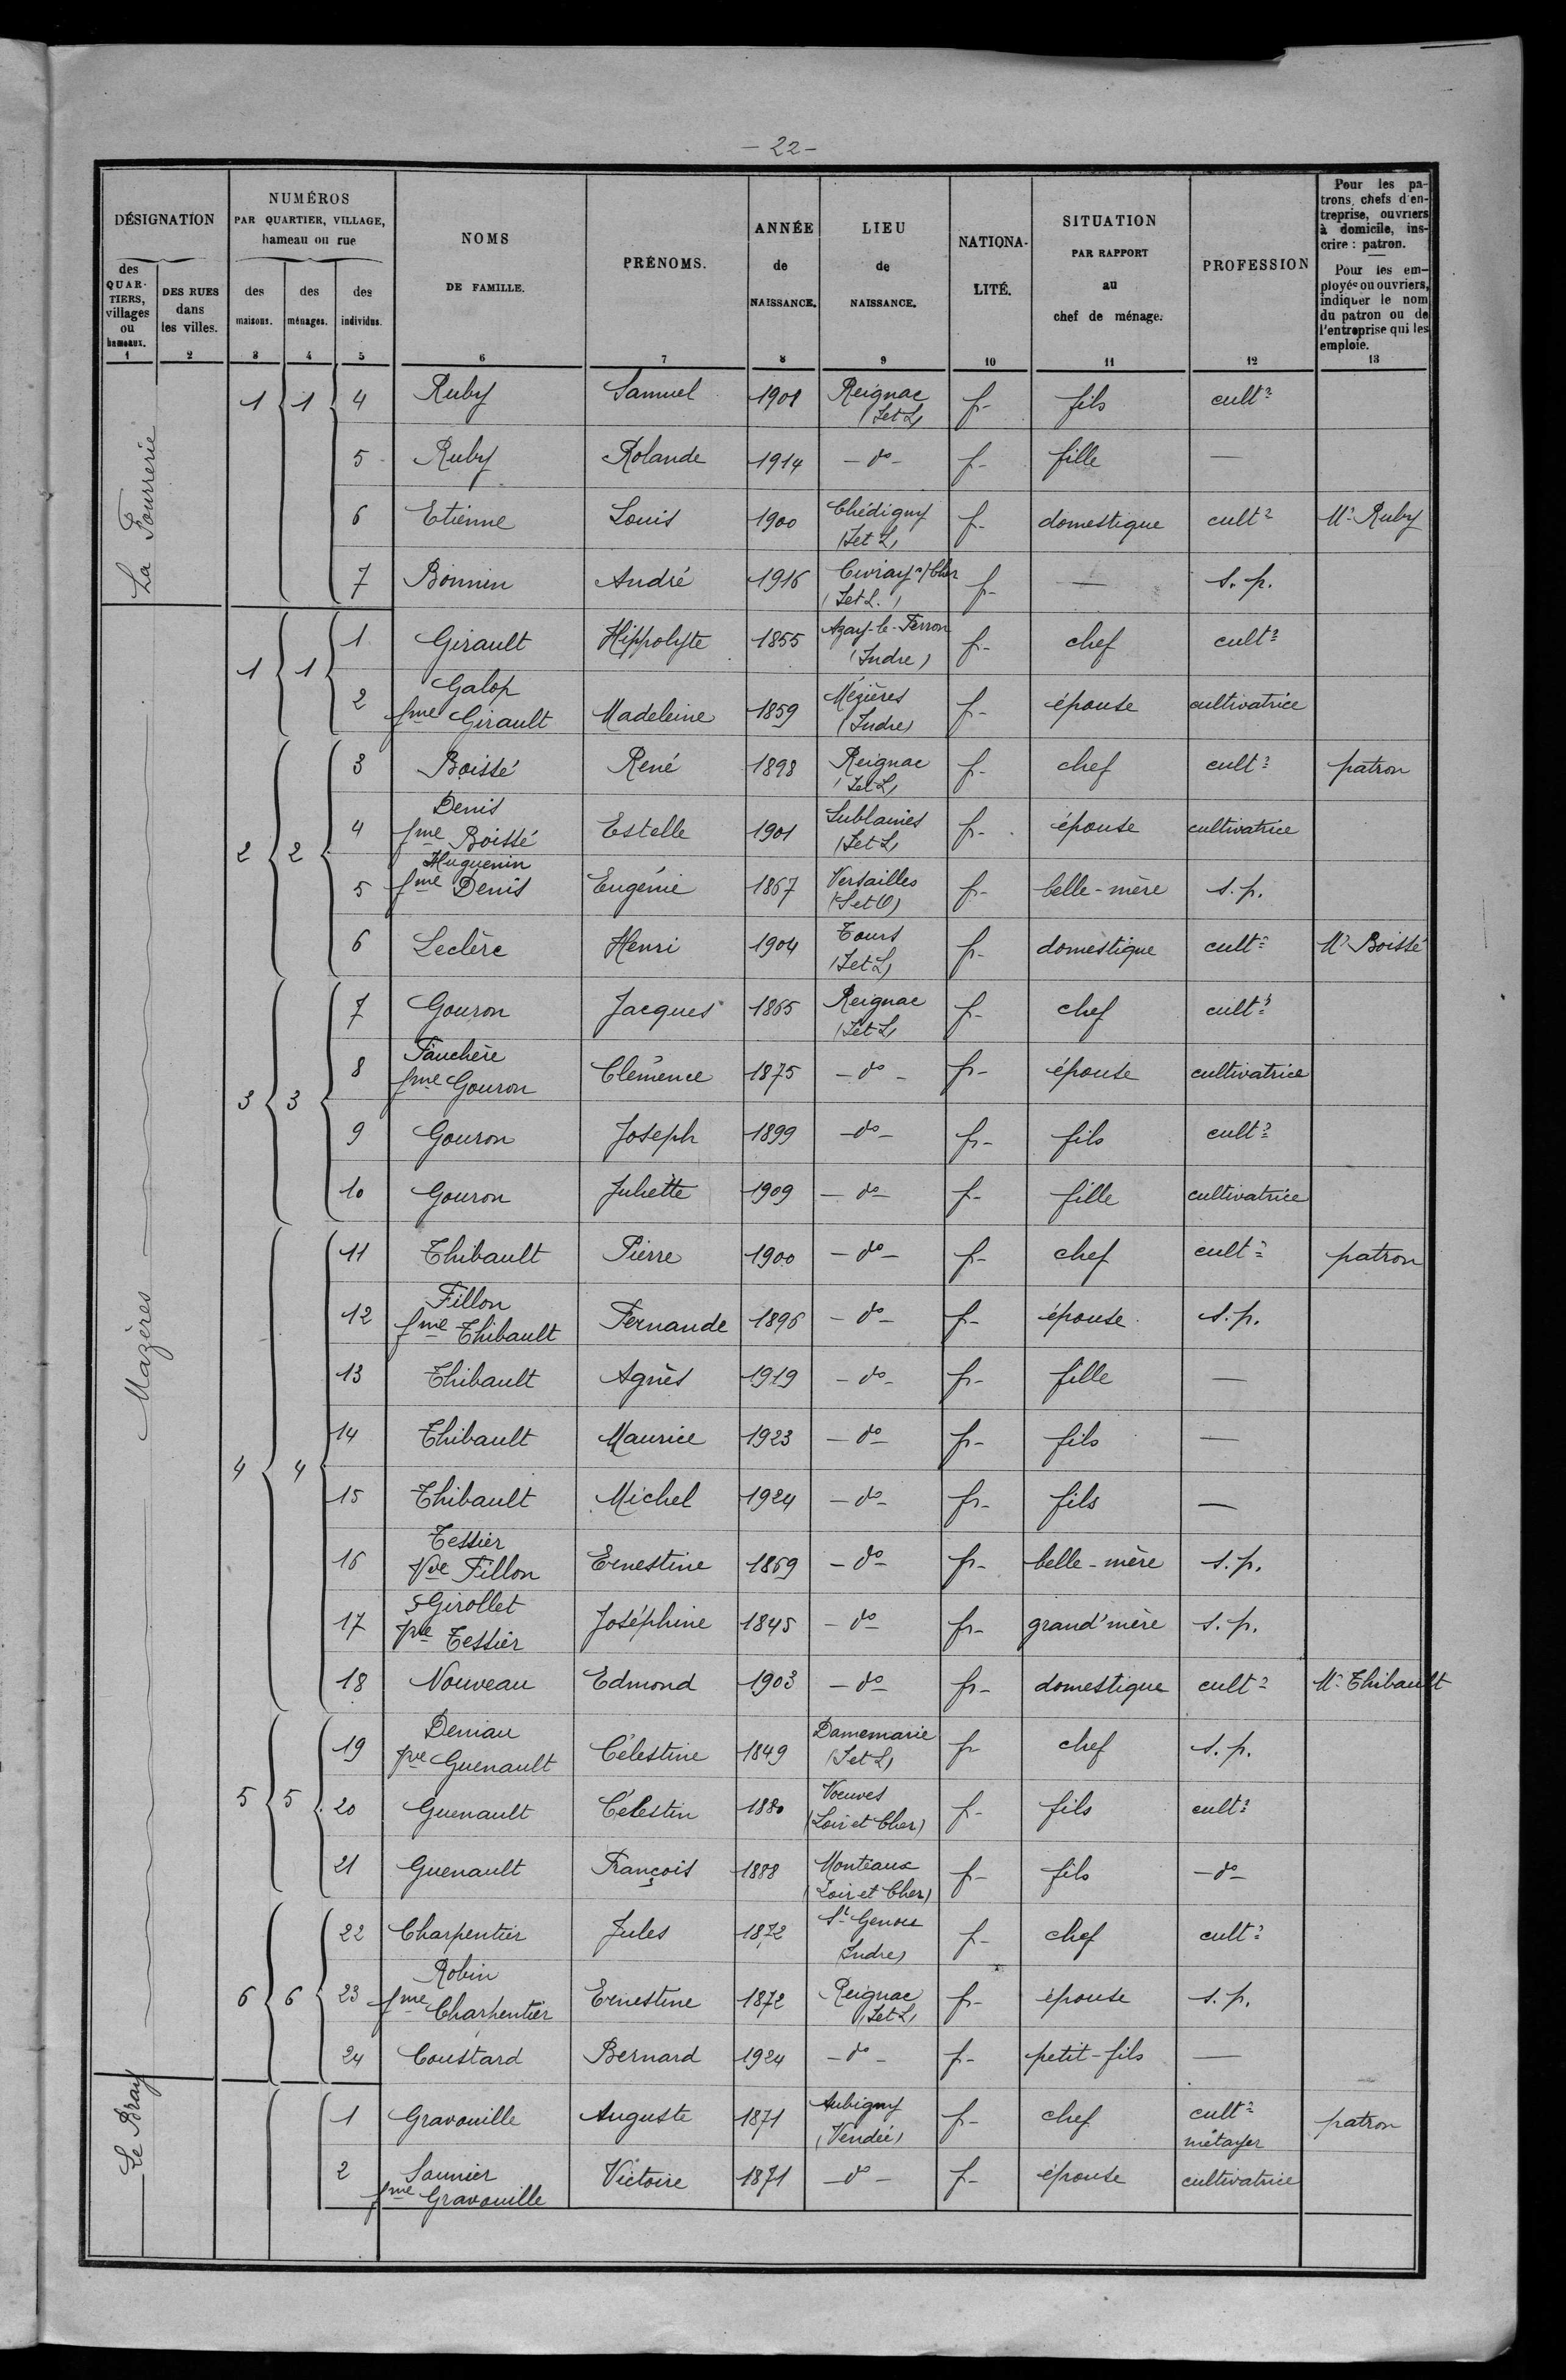 - 22 -
DÉSIGNATION
NUMÉROS
PAR QUARTIER, VILLAGE,
hameau ou rue
NOMS
DE FAMILLE.
PRÉNOMS.
ANNÉE
de
NAISSANCE.
LIEU
de
NAISSANCE.
NATIONA-
LITÉ.
SITUATION
PAR RAPPORT
au
chef de ménage.
PROFESSION
Pour les pa-
trons, chefs d'en-
treprise, ouvriers
à domicile, ins-
crire : patron.
Pour les em-
ployés ou ouvriers,
indiquer le nom
du patron ou de
l'entreprise qui les
emploie.
des
QUAR-
TIERS,
villages
ou
hameaux.
DES RUES
dans
les villes.
des
maisons.
des
ménages.
des
individus.
1 2 3 4 5 6 7 8 9 10 11 12 13
La Fourrerie
1 1 4 Ruby Samuel 1901 Reignac (I et L) fr- fils cultr
5 Ruby Rolande 1914 - do - fr- fille —
6 Etienne Louis 1900 Chédigny (I et L) fr- domestique cultr Mr Ruby
7 Bonnin André 1916 Civray s/ Cher (I et L.) fr- — s. p.
Mazères
1 1 1 Girault Hippolyte 1855 Azay-le-Ferron (Indre) fr- chef cultr
2 Galop fme Girault Madeleine 1859 Mézières (Indre) fr- épouse cultivatrice
2 2 3 Boissé René 1898 Reignac (I et L) fr- chef cultr patron
4 Denis fme Boissé Estelle 1901 Sublaines (I et L) fr- épouse cultivatrice
5 Huguenin fme Denis Eugénie 1867 Versailles (S et O) fr- belle-mère s. p.
6 Leclère Henri 1904 Tours (I et L) fr- domestique cultr Mr Boissé
3 3 7 Gouron Jacques 1865 Reignac (I et L) fr- chef cultr
8 Fauchère fme Gouron Clémence 1875 - do - fr- épouse cultivatrice
9 Gouron Joseph 1899 - do - fr- fils cultr
10 Gouron Juliette 1909 - do - fr- fille cultivatrice
4 4 11 Thibault Pierre 1900 - do - fr- chef cultr patron
12 Fillon fme Thibault Fernande 1896 - do - fr- épouse s. p.
13 Thibault Agnès 1919 - do - fr- fille —
14 Thibault Maurice 1923 - do - fr- fils —
15 Thibault Michel 1924 - do - fr- fils —
16 Tessier Vve Fillon Ernestine 1869 - do - fr- belle-mère s. p.
17 Girollet Vve Tessier Joséphine 1845 - do - fr- grand'mère s. p.
18 Nouveau Edmond 1903 - do - fr- domestique cultr Mr Thibault
5 5 19 Deniau Vve Guenault Célestine 1849 Damemarie (I et L) fr- chef s. p.
20 Guenault Célestin 1880 Voeuves (Loir et Cher) fr- fils cultr
21 Guenault François 1888 Monteaux (Loir et Cher) fr- fils - do -
6 6 22 Charpentier Jules 1872 St Genou (Indre) fr- chef cultr
23 Robin fme Charpentier Ernestine 1872 Reignac (I et L) fr- épouse s. p.
24 Coustard Bernard 1924 - do - fr- petit-fils —
Le Bray
1 Gravouille Auguste 1871 Aubigny (Vendée) fr- chef cultr métayer patron
2 Saunier fme Gravouille Victoire 1871 - do - fr- épouse cultivatrice